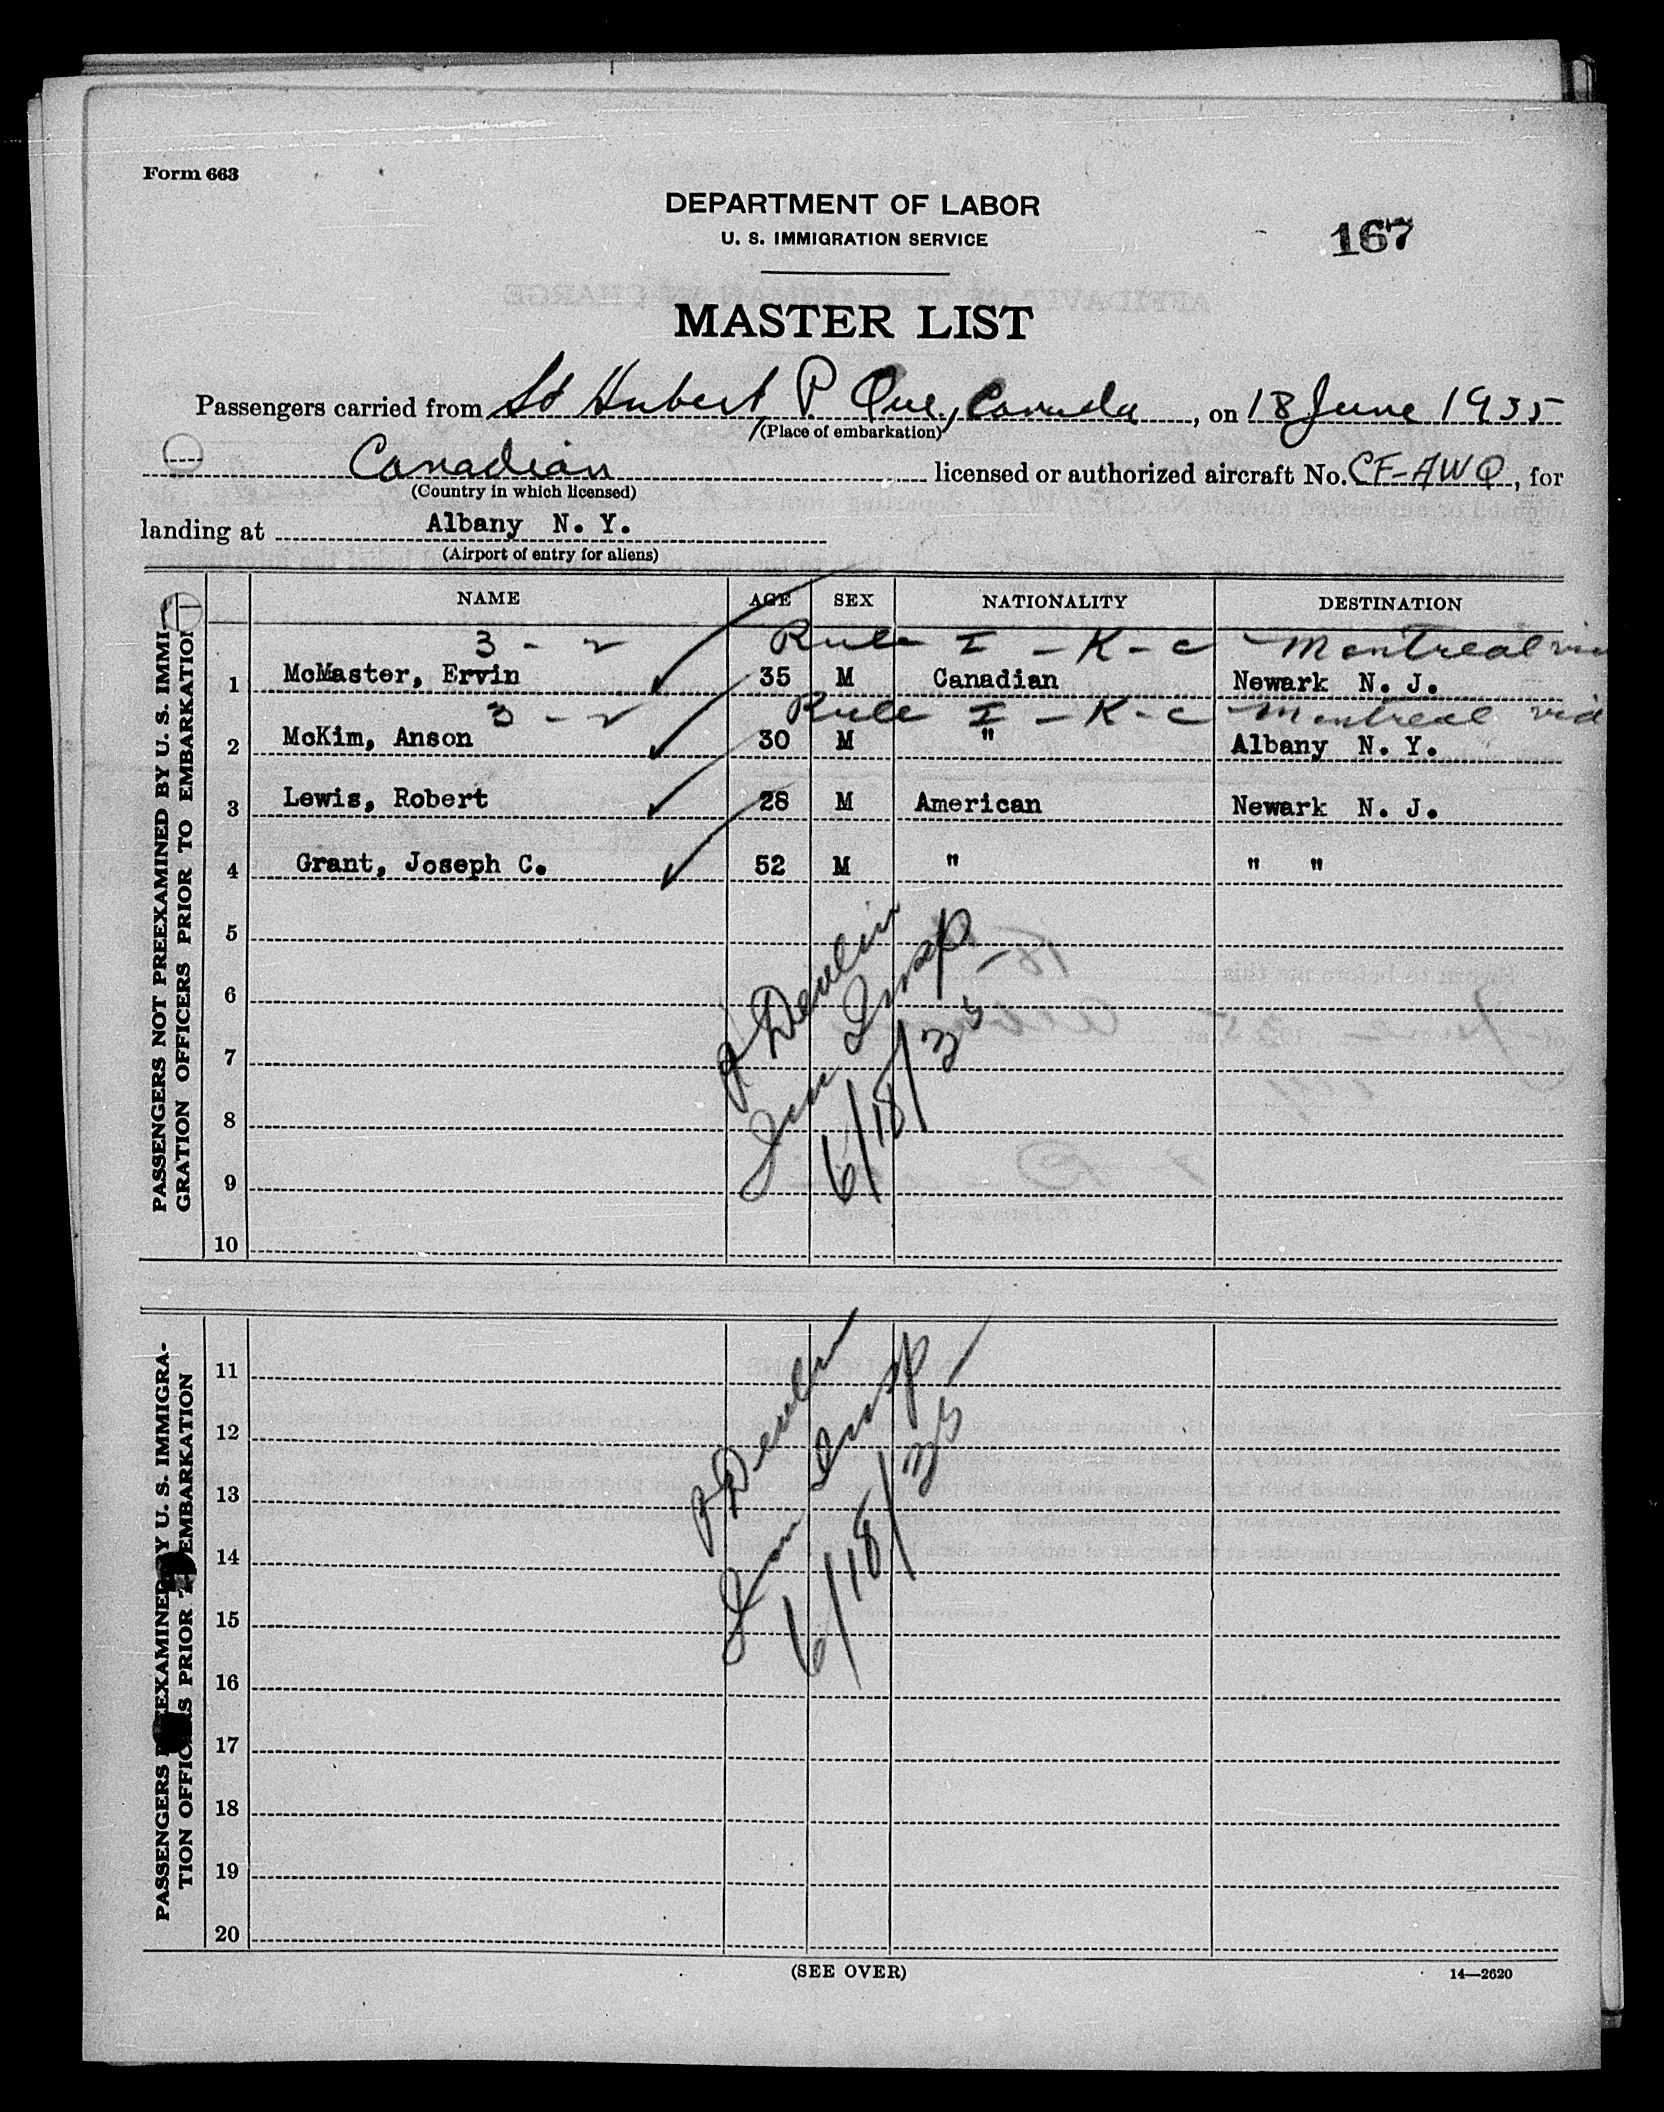 Form 663
DEPARTMENT OF LABOR
U. S. IMMIGRATION SERVICE
167
MASTER LIST
Passengers carried from St Hubert P. Que., Canada, on 18 June 1935
(Place of embarkation)
Canadian licensed or authorized aircraft No. CF-AWQ, for
(Country in which licensed)
landing at Albany N. Y.
(Airport of entry for aliens)
PASSENGERS NOT PREEXAMINED BY U. S. IMMI-
GRATION OFFICERS PRIOR TO EMBARKATION
NAME AGE SEX NATIONALITY DESTINATION
3 - 2 Rule I - K - c Montreal via
1 McMaster, Ervin 35 M Canadian Newark N. J.
3 - 2 Rule I - K - c Montreal via
2 McKim, Anson 30 M " Albany N. Y.
3 Lewis, Robert 28 M American Newark N. J.
4 Grant, Joseph C. 52 M " " "
5
6
7
8
9
10
P Devlin
Imm Insp
6/18/35
PASSENGERS EXAMINED BY U. S. IMMIGRA-
TION OFFICERS PRIOR EMBARKATION
11
12
13
14
15
16
17
18
19
20
P Devlin
Imm Insp
6/18/35
(SEE OVER)
14—2620